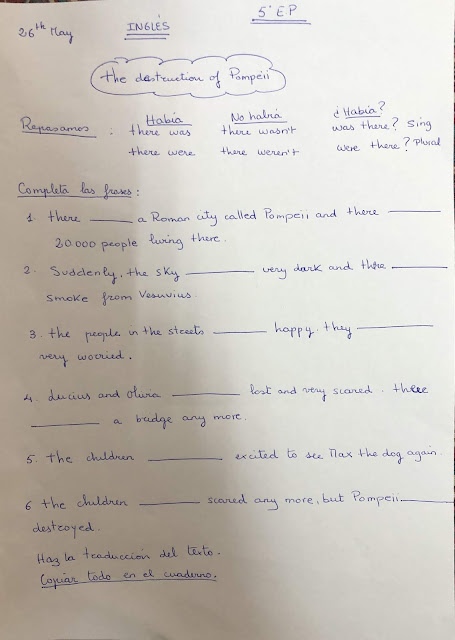 26th May INGLÉS 5º EP
The destruction of Pompeii
Había No había ¿Había?
Repasamos : there was there wasn't was there? Sing
there were there weren't were there? Plural
Completa las frases :
1. there ______ a Roman city called Pompeii and there ______
20.000 people living there.
2. Suddenly, the sky ______ very dark and there ______
smoke from Vesuvius.
3. The people in the streets ______ happy. They ______
very worried.
4. Lucius and Olivia ______ lost and very scared. there
______ a bridge any more.
5. The children ______ excited to see Max the dog again.
6 The children ______ scared any more, but Pompeii ______
destroyed.
Haz la traducción del texto.
Copiar todo en el cuaderno.